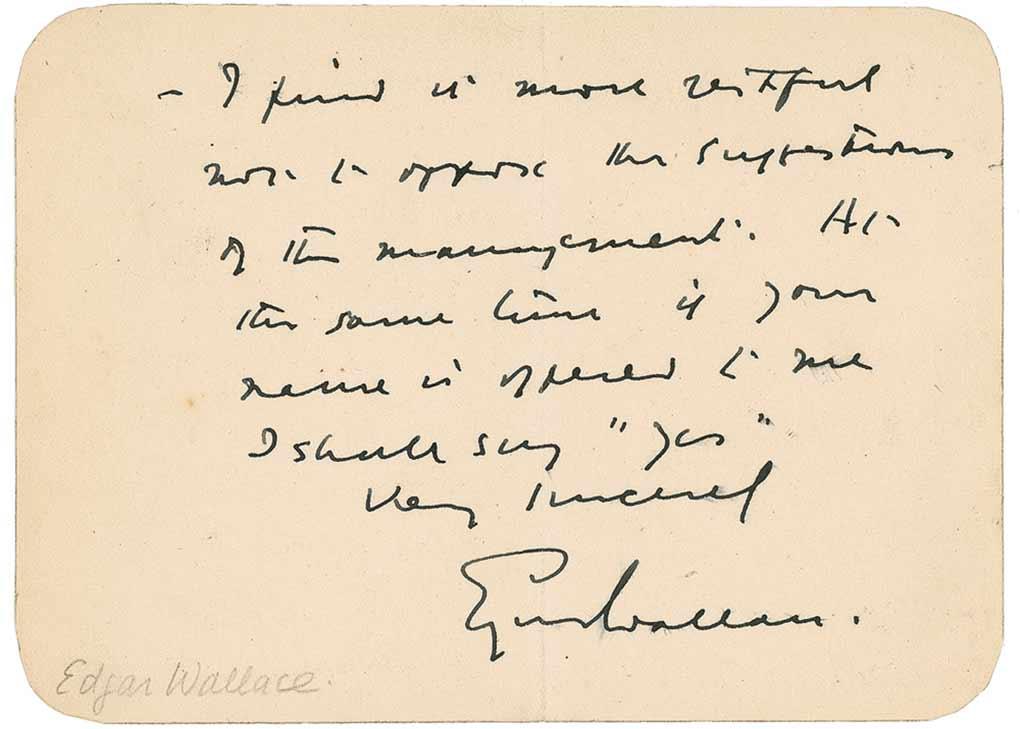 - I find it more restful
not to oppose the suggestions
of the management. At
the same time if your
name is offered to me
I shall say "yes"
Very sincerely
Edgar Wallace.
Edgar Wallace.